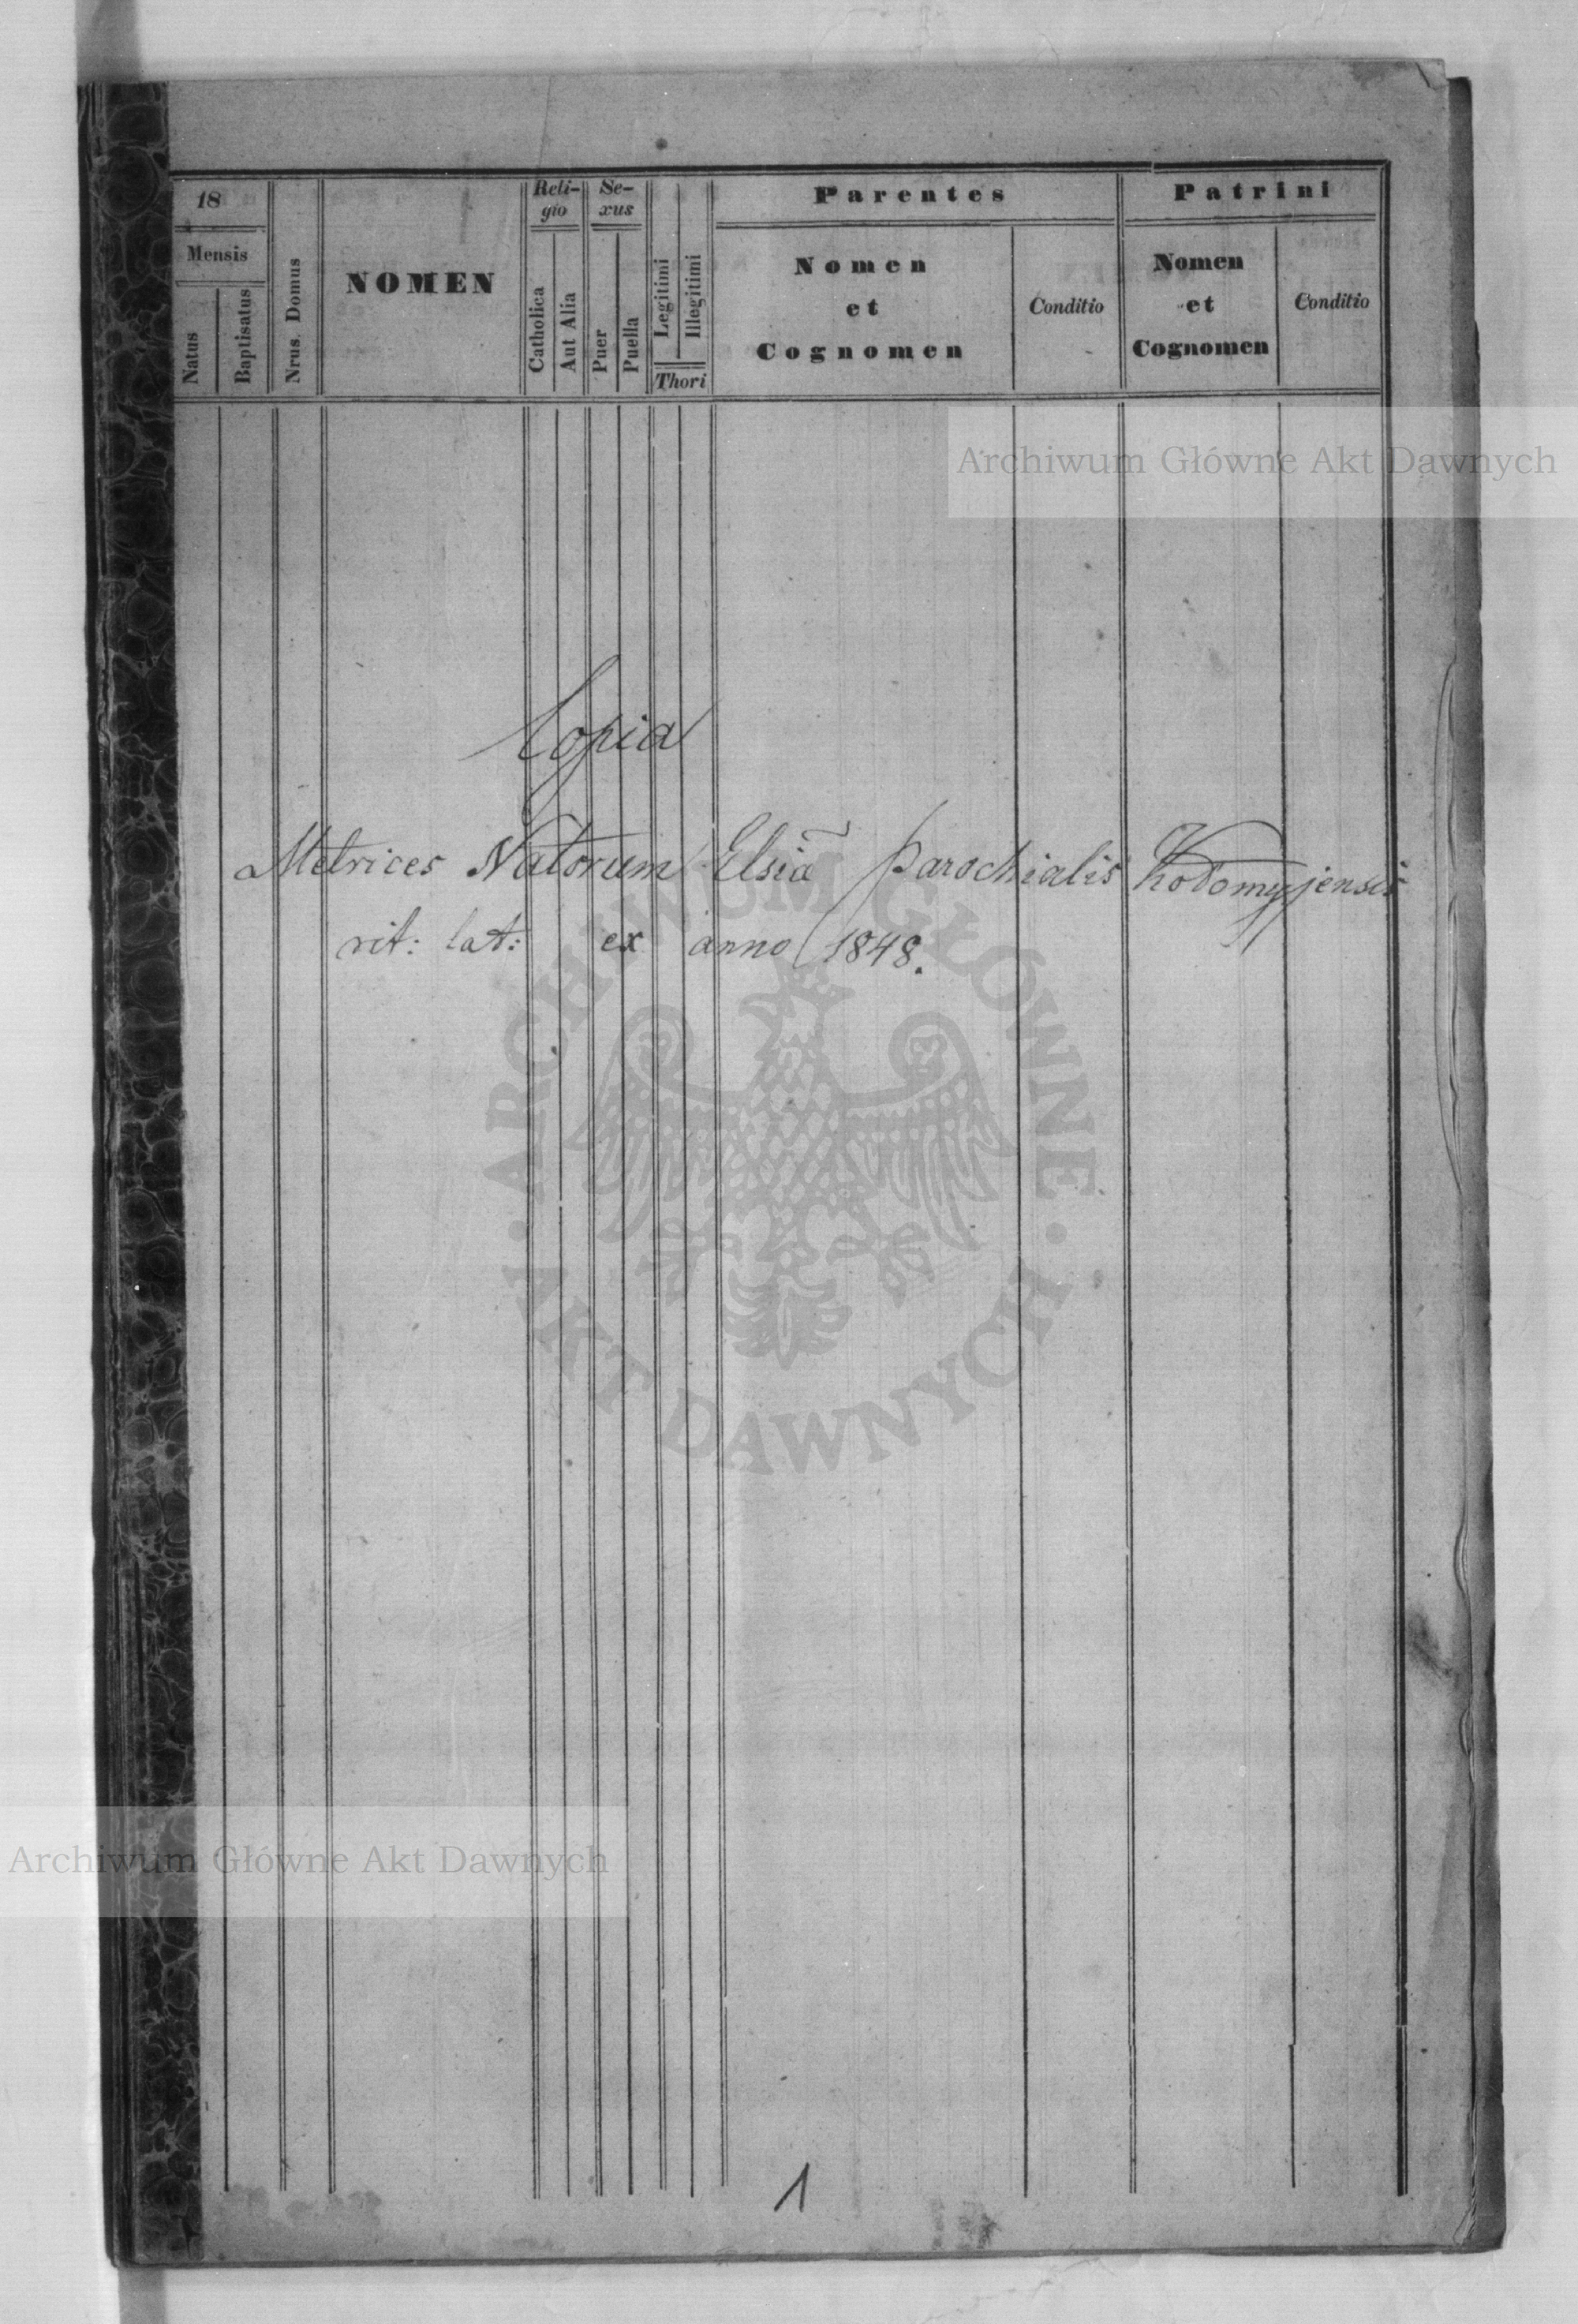 18
Mensis
Natus
Baptisatus
Nrus. Domus
NOMEN
Reli-
gio
Catholica
Aut Alia
Se-
xus
Puer
Puella
Legitimi
Illegitimi
Thori
Parentes
Nomen
et
Cognomen
Conditio
Patrini
Nomen
et
Cognomen
Conditio
Archiwum Główne Akt Dawnych
Copia
Metrices Natorum Elsiæ̃ Parochialis Kodomyjensis
rit: lat: ex anno 1848.
ARCHIWUM GŁÓWNE · AKT DAWNYCH ·
Archiwum Główne Akt Dawnych
1